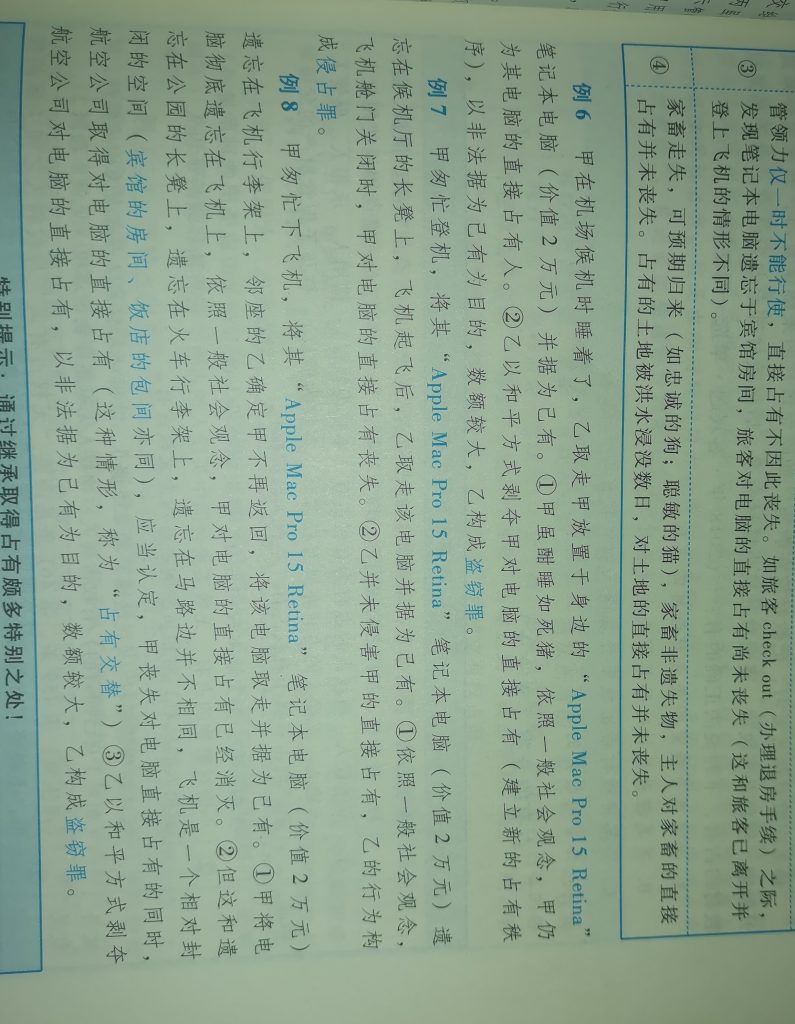 管领力仅一时不能行使，直接占有不因此丧失。如旅客 check out（办理退房手续）之际，
③ 发现笔记本电脑遗忘于宾馆房间，旅客对电脑的直接占有尚未丧失（这和旅客已离开并
登上飞机的情形不同）。
④ 家畜走失，可预期归来（如忠诚的狗；聪敏的猫），家畜非遗失物，主人对家畜的直接
占有并未丧失。占有的土地被洪水浸没数日，对土地的直接占有并未丧失。
例 6 甲在机场候机时睡着了，乙取走甲放置于身边的“Apple Mac Pro 15 Retina”
笔记本电脑（价值 2 万元）并据为己有。①甲虽酣睡如死猪，依照一般社会观念，甲仍
为其电脑的直接占有人。②乙以和平方式剥夺甲对电脑的直接占有（建立新的占有秩
序），以非法据为己有为目的，数额较大，乙构成盗窃罪。
例 7 甲匆忙登机，将其“Apple Mac Pro 15 Retina”笔记本电脑（价值 2 万元）遗
忘在候机厅的长凳上，飞机起飞后，乙取走该电脑并据为己有。①依照一般社会观念，
飞机舱门关闭时，甲对电脑的直接占有丧失。②乙并未侵害甲的直接占有，乙的行为构
成侵占罪。
例 8 甲匆忙下飞机，将其“Apple Mac Pro 15 Retina”笔记本电脑（价值 2 万元）
遗忘在飞机行李架上，邻座的乙确定甲不再返回，将该电脑取走并据为己有。①甲将电
脑彻底遗忘在飞机上，依照一般社会观念，甲对电脑的直接占有已经消灭。②但这和遗
忘在公园的长凳上，遗忘在火车行李架上，遗忘在马路边并不相同，飞机是一个相对封
闭的空间（宾馆的房间、饭店的包间亦同），应当认定，甲丧失对电脑直接占有的同时，
航空公司取得对电脑的直接占有（这种情形，称为“占有交替”）③乙以和平方式剥夺
航空公司对电脑的直接占有，以非法据为己有为目的，数额较大，乙构成盗窃罪。
特别提示：通过继承取得占有颇多特别之处！